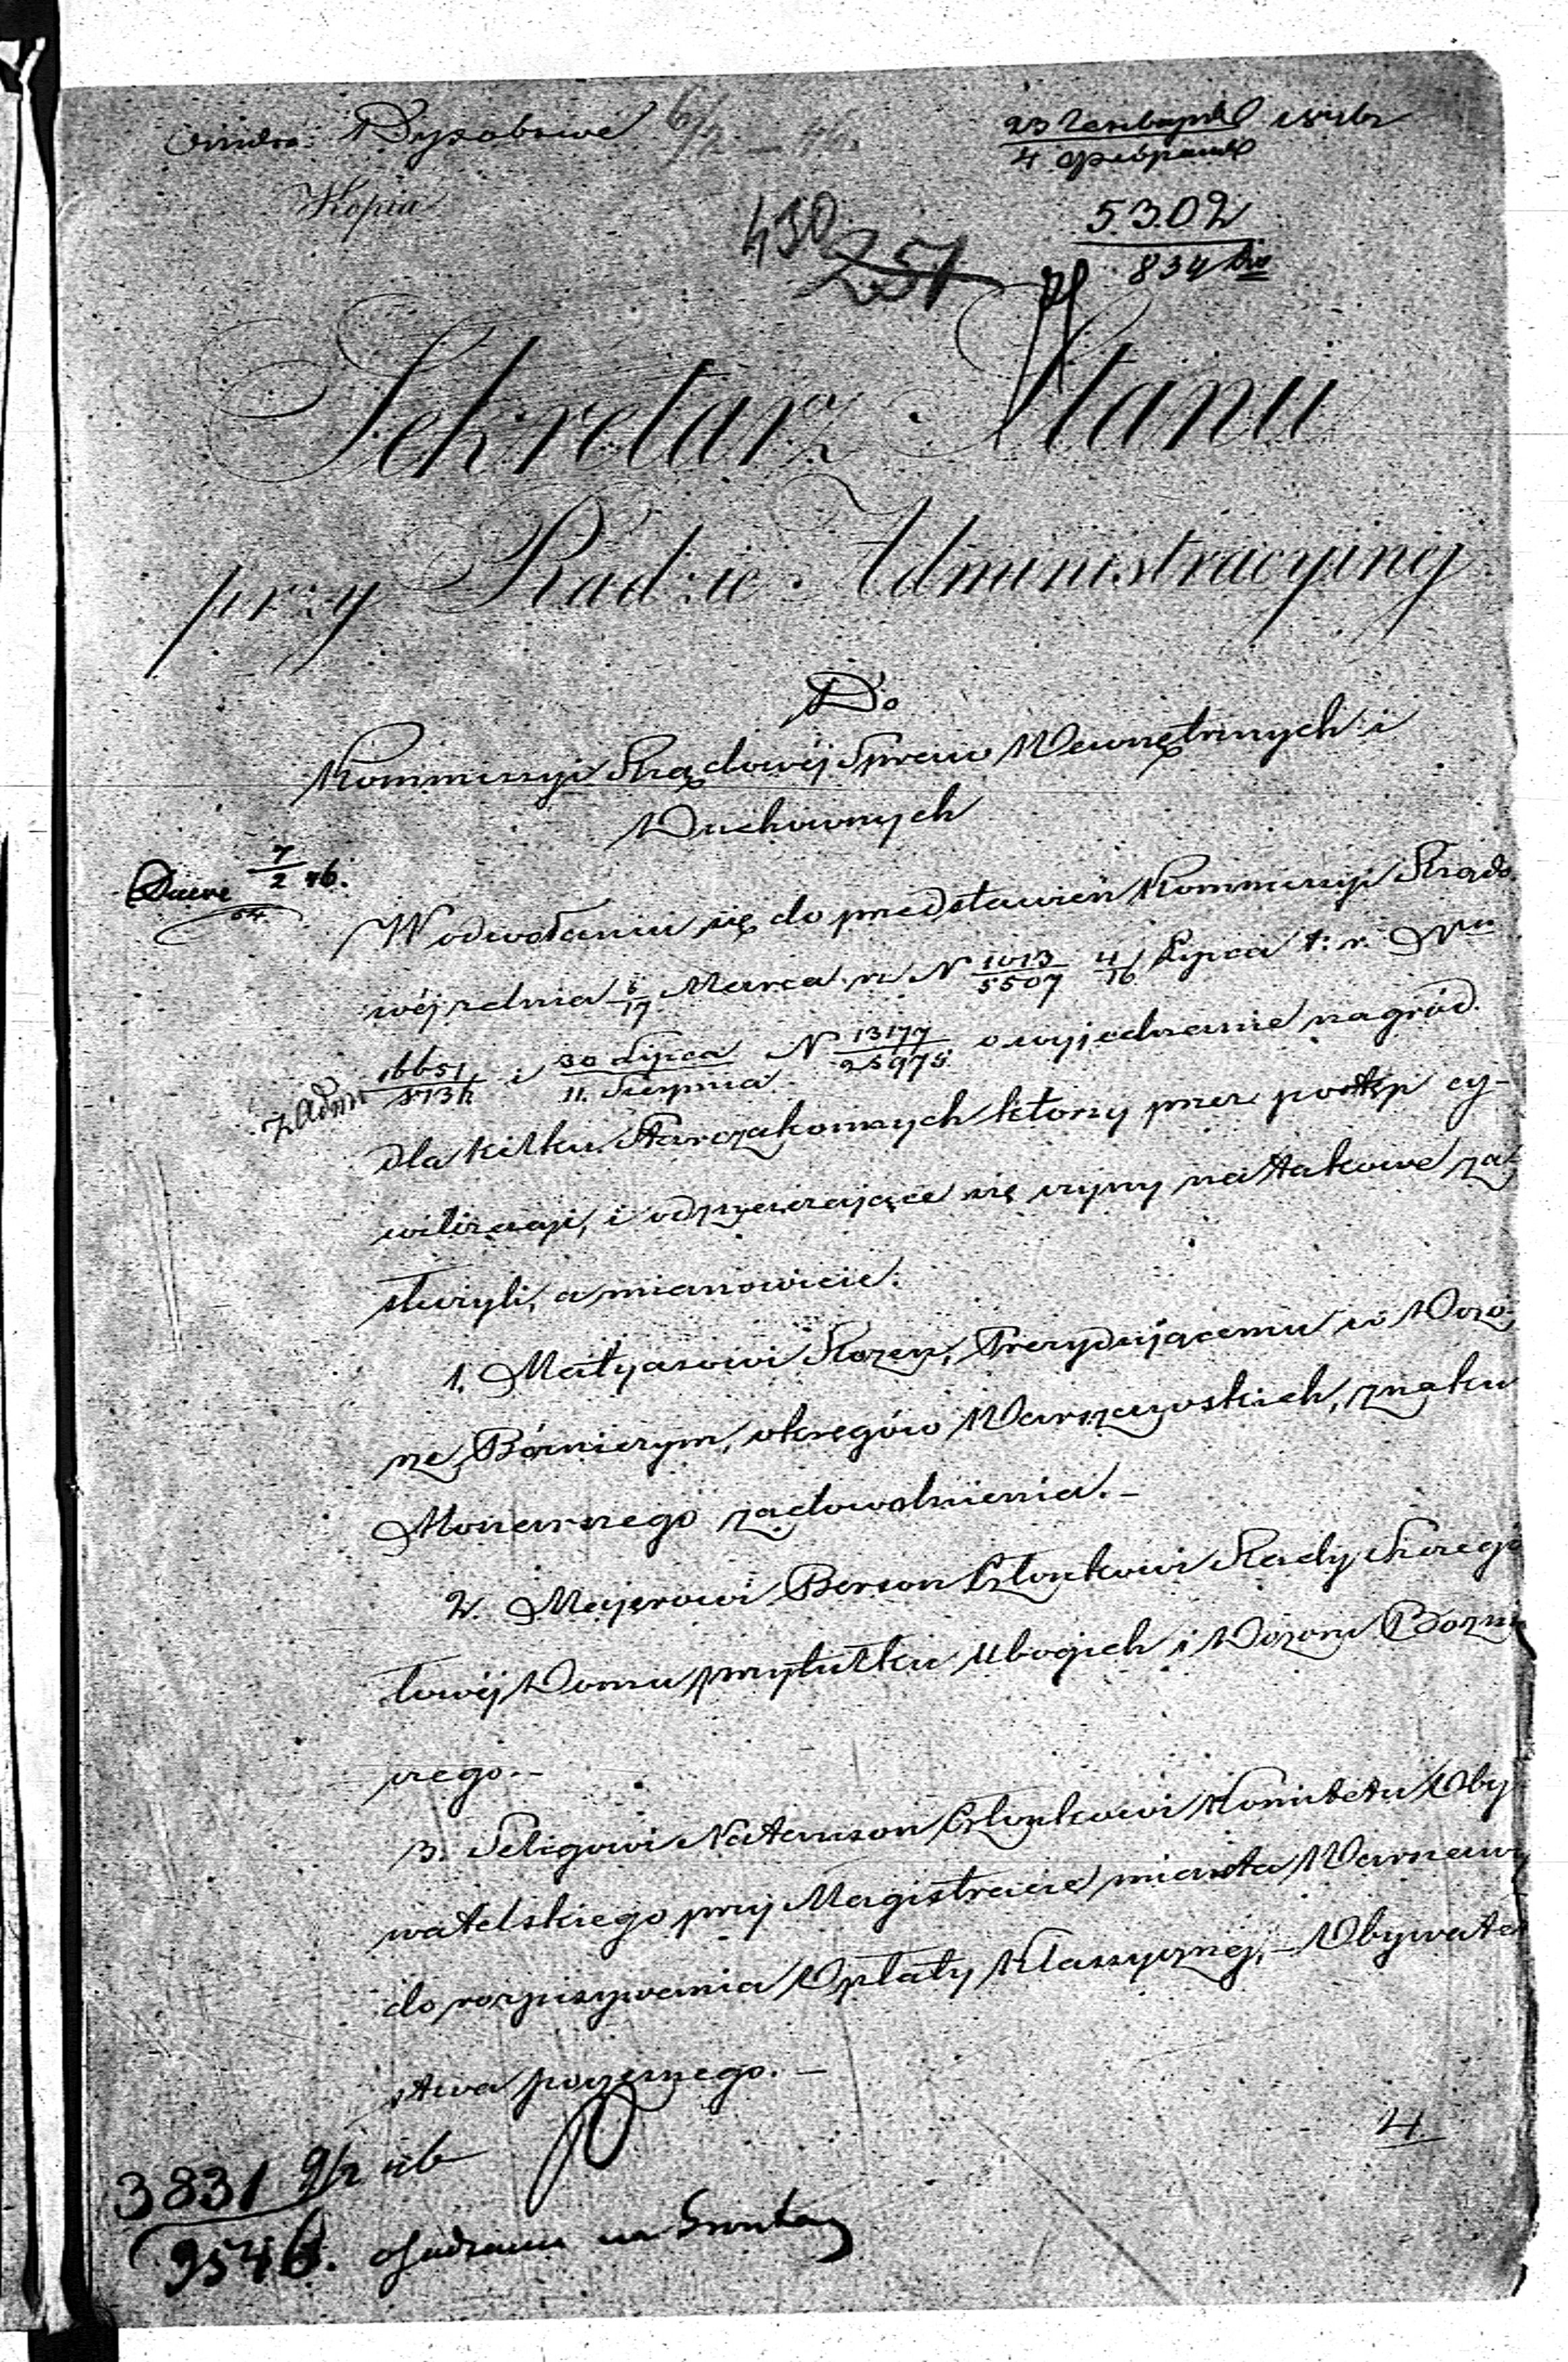 Kopia
430 251
5302
834
Sekretarz Stanu
przy Radzie Administracyinej
Do
Kommissyi Rządowéj Spraw Wewnętrznych i
Duchownych
7/2 46.
W odwołaniu się do przedstawień Kommissyi Rządo-
wéj z dnia 5/17 Marca r. N 1013/5507 4/16 Lipca t: r. Nru
16651/5736 i 30 Lipca/11. Sierpnia N 13177/25975 o wyjednanie nagród
dla kilku Starozakonnych którzy przez postęp cy-
wilizacyi, i odznaczające się czyny na takowe za-
służyli, a mianowicie:
1. Matyasowi Rozen, Prezydującemu w Dozo-
rze Bóżniczym, okręgów Warszawskich, znaku
Monarszego zadowolnienia. –
2. Majerowi Berson Członkowi Rady Szczegó
łowéj Domu przytułku Ubogich i Dozoru Bożni
czego. –
3. Seligowi Natanson Członkowi Komitetu Oby
watelskiego przy Magistracie miasta Warszawy
do rozpisywania Opłaty Klassycznej, – Obywatel
stwa poczesnego. –
4.
3831 9/2 46
9546.